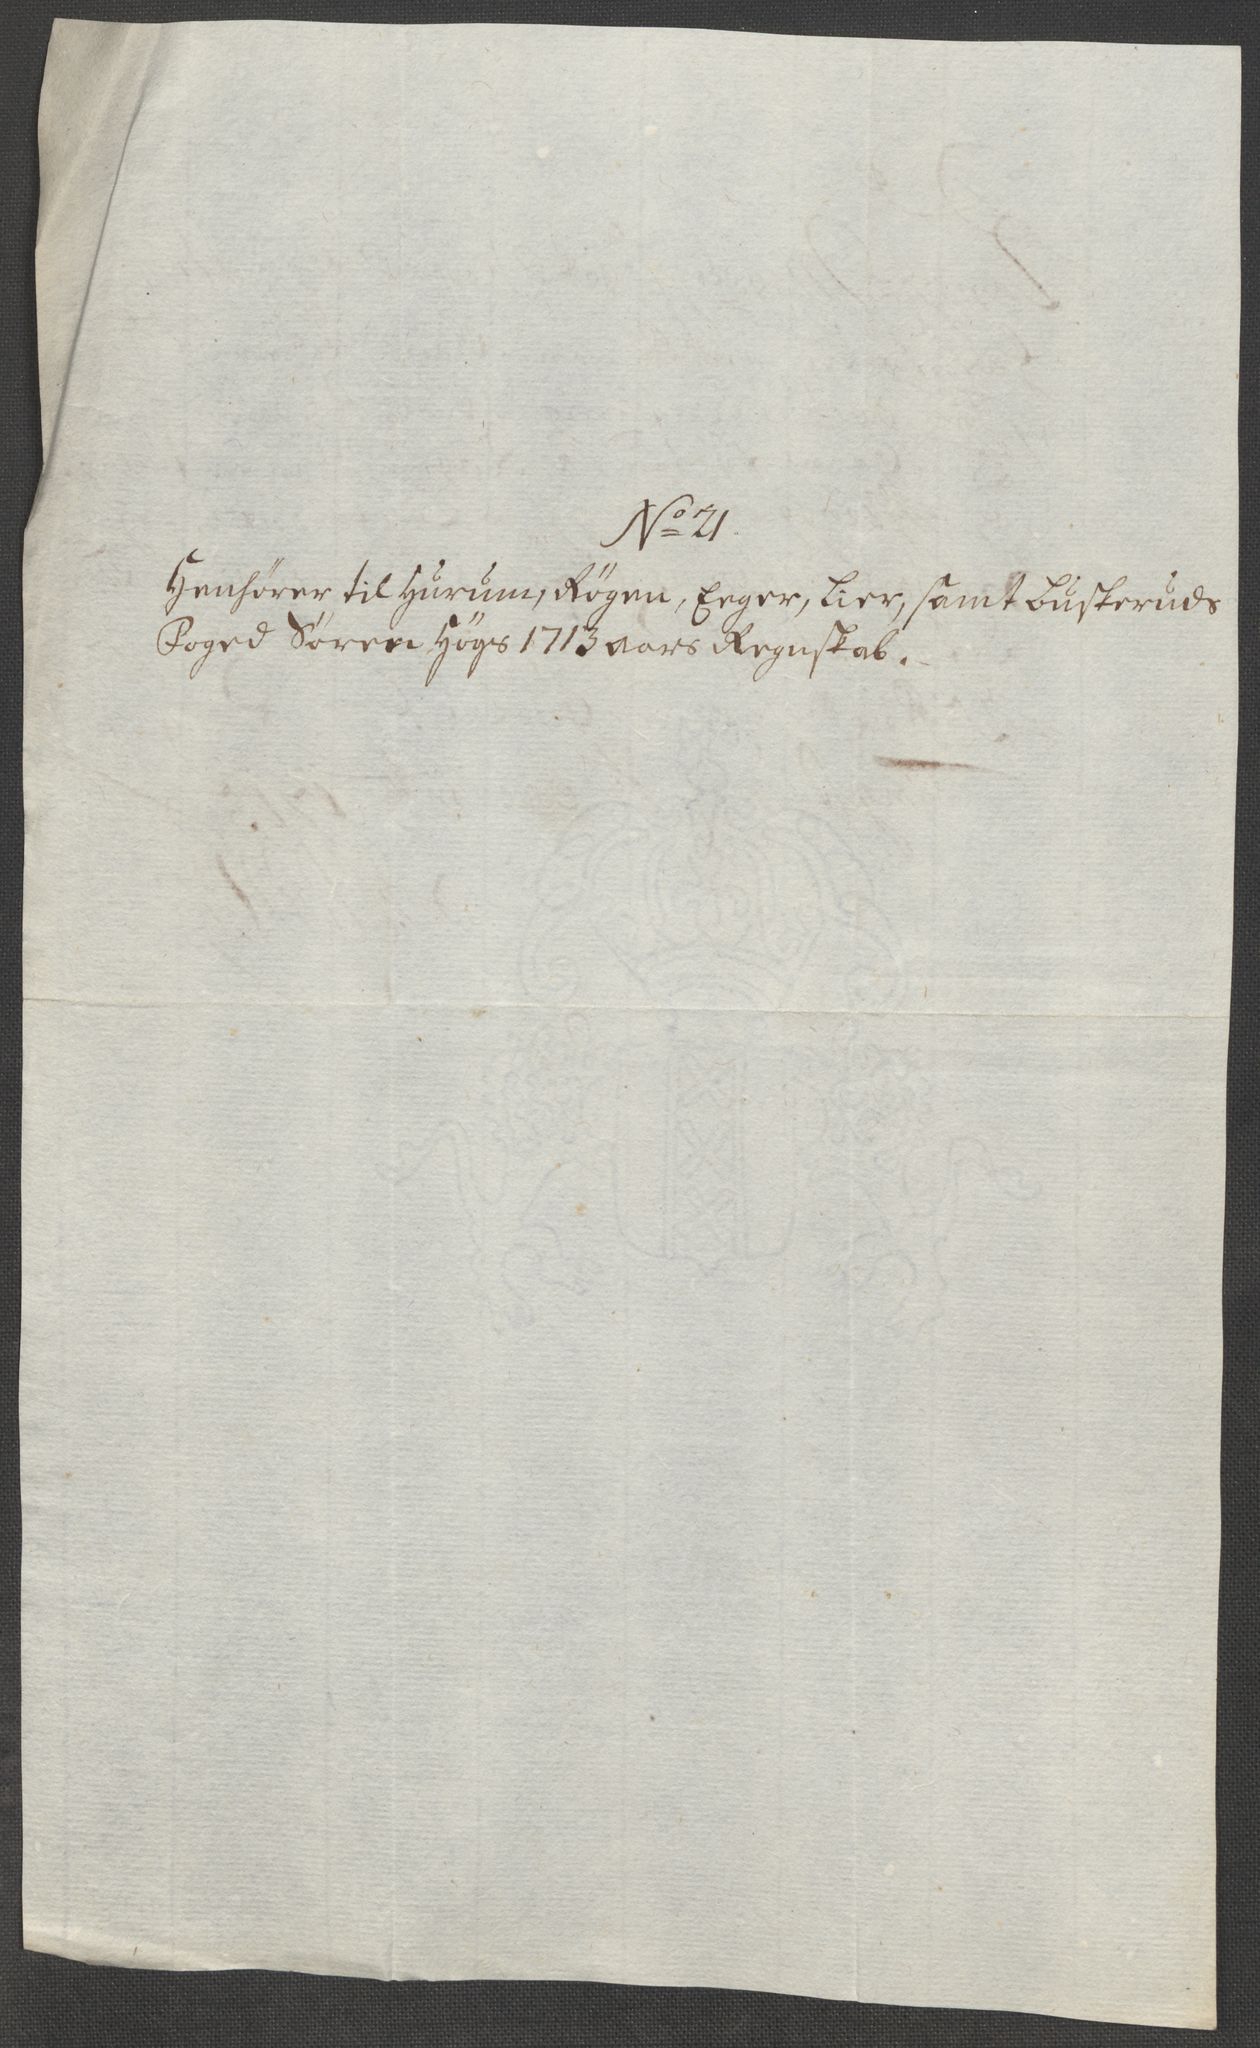 No 21.
Henhører til Hurum, Røgen, Eeger, Lier, samt Buskeruds
Foged Søren Høgs 1713 aars Regnskab.